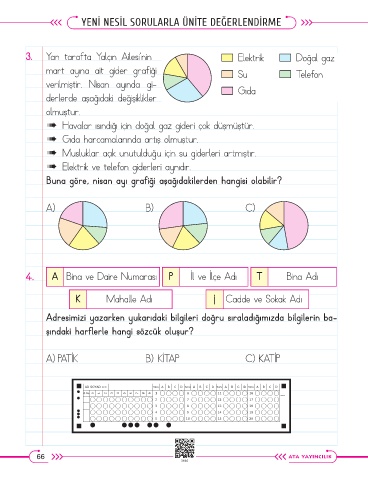 YENİ NESİL SORULARLA ÜNİTE DEĞERLENDİRME
3. Yan tarafta Yalçın Ailesi'nin
mart ayına ait gider grafiği
verilmiştir. Nisan ayında gi-
derlerde aşağıdaki değişiklikler
olmuştur.
Elektrik
Doğal gaz
Su
Telefon
Gıda
Havalar ısındığı için doğal gaz gideri çok düşmüştür.
Gıda harcamalarında artış olmuştur.
Musluklar açık unutulduğu için su giderleri artmıştır.
Elektrik ve telefon giderleri aynıdır.
Buna göre, nisan ayı grafiği aşağıdakilerden hangisi olabilir?
A) B) C)
4. A Bina ve Daire Numarası P İl ve İlçe Adı T Bina Adı
K Mahalle Adı İ Cadde ve Sokak Adı
Adresimizi yazarken yukarıdaki bilgileri doğru sıraladığımızda bilgilerin ba-
şındaki harflerle hangi sözcük oluşur?
A) PATİK B) KİTAP C) KATİP
66
ATA YAYINCILIK